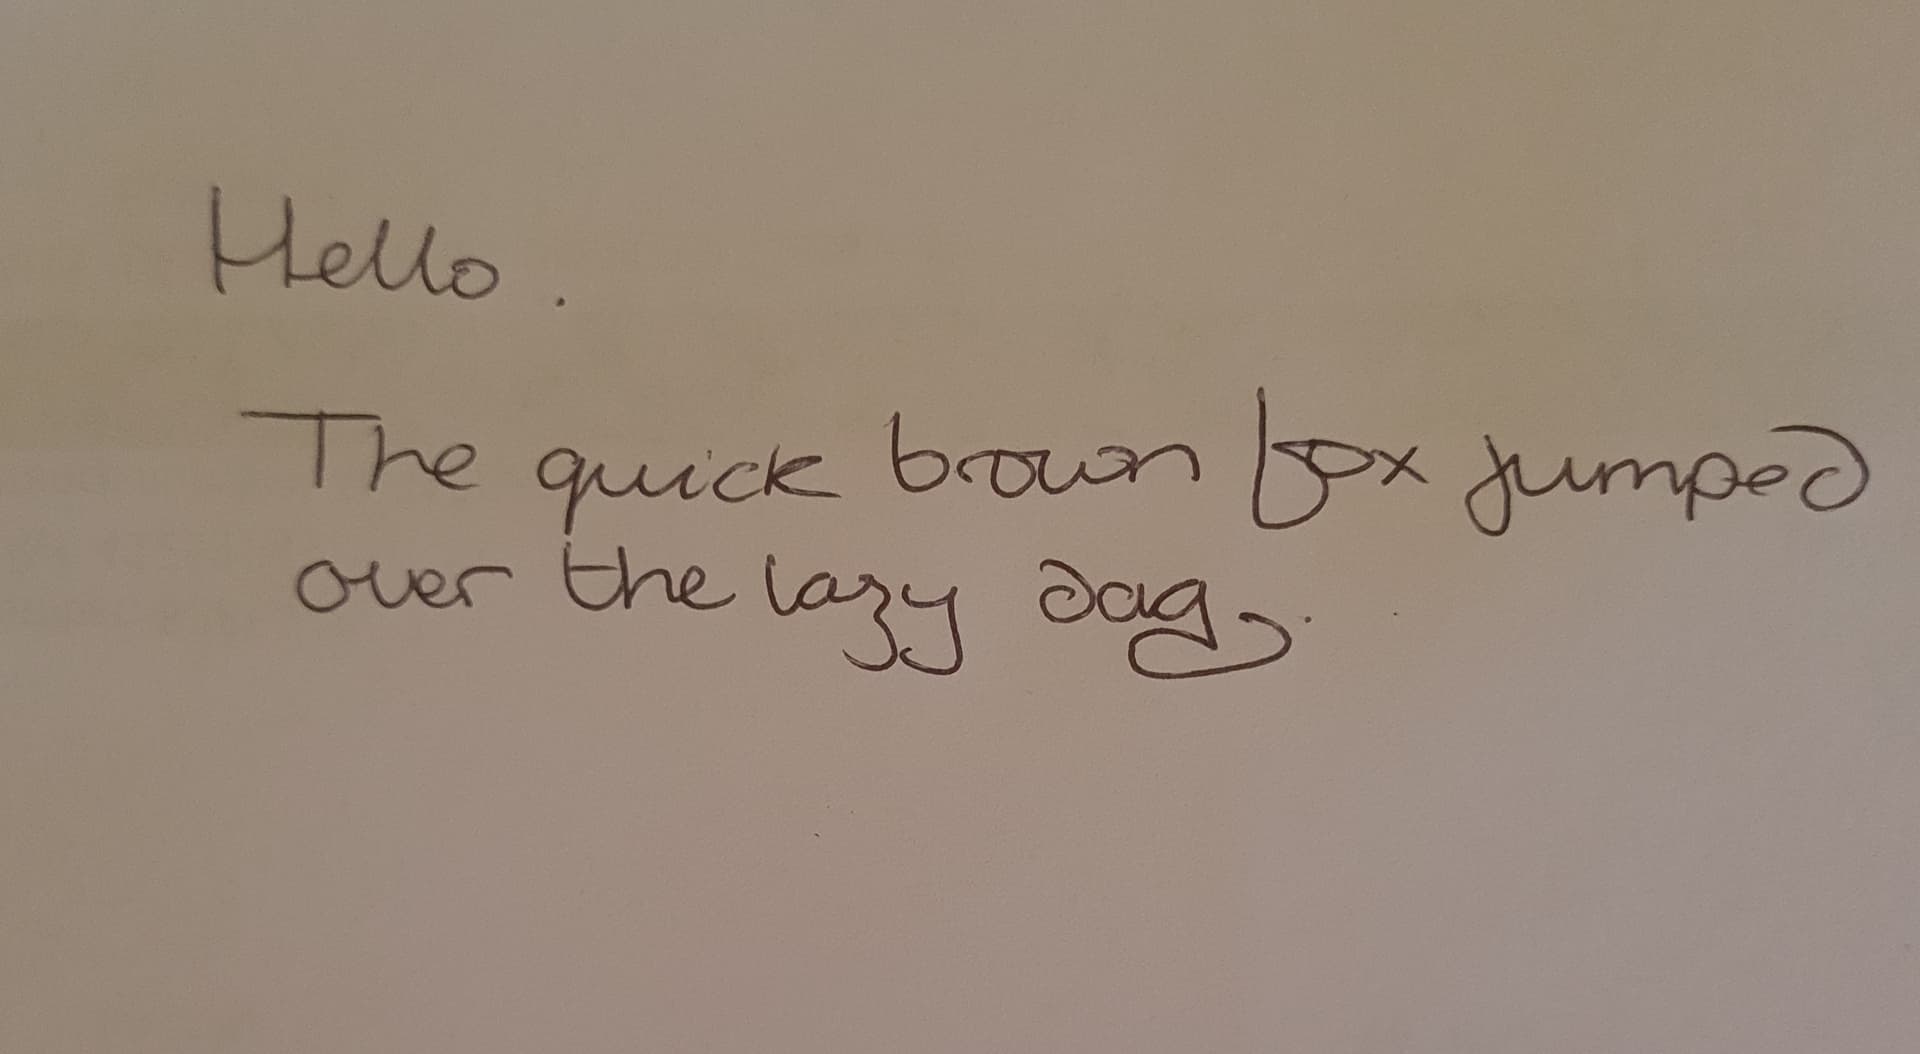 Hello.
The quick brown fox jumped
over the lazy dog.